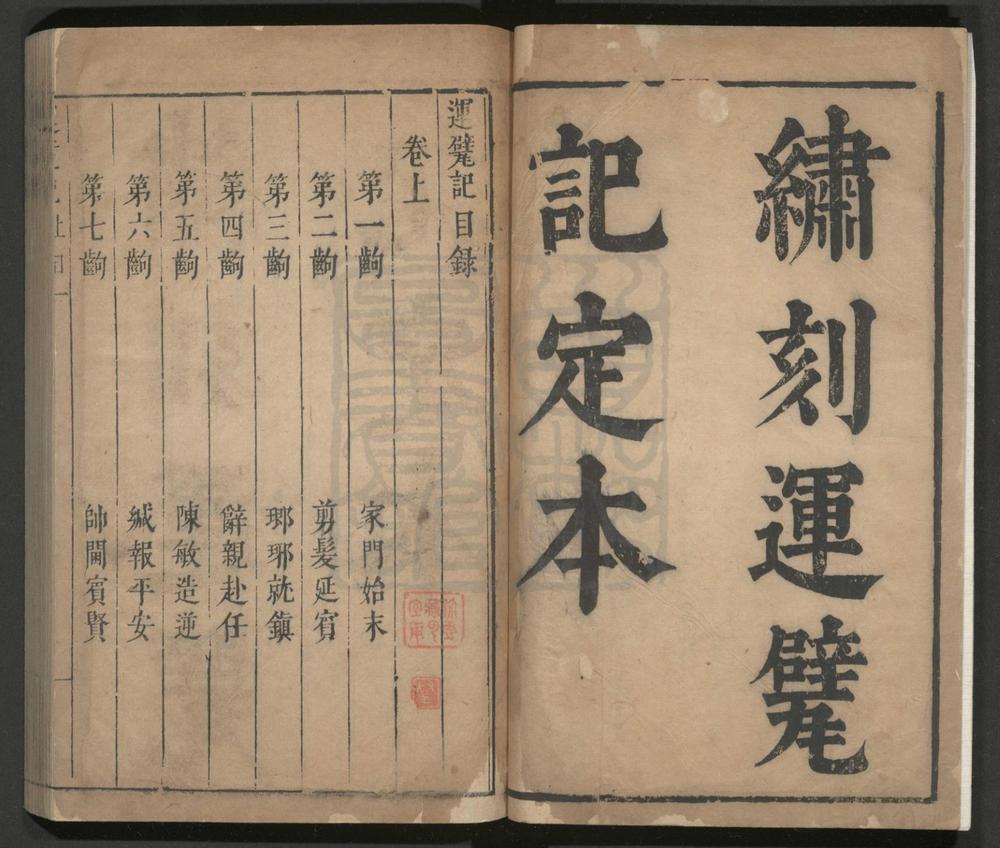 繡刻運甓
記定本
運甓記目錄
卷上
第一齣 家門始末
第二齣 剪髮延賓
第三齣 瑯琊就鎭
第四齣 辭親赴任
第五齣 陳敏造逆
第六齣 緘報平安
第七齣 帥開賓賢